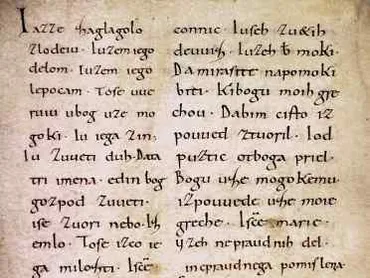 Iazze zaglagolo
zlodeiu · Iuzem iego
delom · Iuzem iego
lepocam · Tose uue
ruiu ubog uze mo
goki · Iu iega zin ·
Iu zuueti duh · Data
tri imena · edin bog
gozpod zuueti ·
ise zuori nebo · Iz
emlo · Tose izco ie
ga milozti · Iscē
connic · Iuseh
deuuiz · Iuzeh moki ·
Da mirasite napomoki
biti · Kibogu moih gre
chou · Dabim cisto iz
pouued ztuoril · Iod
puztic otboga priel ·
Bogu uze mogokemu ·
izpouuede uze moie
greche · Iscē marie ·
uzeh nepraudnih del ·
inepraudnega